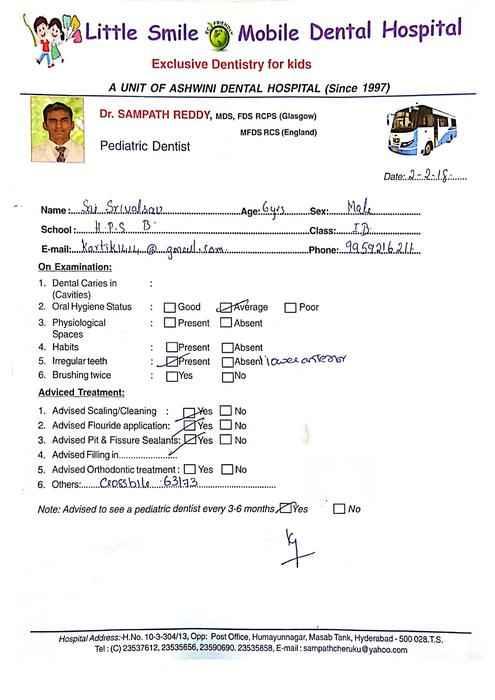 Little Smile Mobile Dental Hospital
ECO FRIENDLY
Exclusive Dentistry for kids
A UNIT OF ASHWINI DENTAL HOSPITAL (Since 1997)
Dr. SAMPATH REDDY, MDS, FDS RCPS (Glasgow)
MFDS RCS (England)
Pediatric Dentist
Date: 2-2-18
Name: Sai Srivatsav Age: 6yrs Sex: Male
School: H.P.S B Class: I B
E-mail: Phone: 9959216211
On Examination:
1. Dental Caries in :
(Cavities)
2. Oral Hygiene Status : Good Average Poor
3. Physiological : Present Absent
Spaces
4. Habits : Present Absent
5. Irregular teeth : Present Absent lower anterior
6. Brushing twice : Yes No
Adviced Treatment:
1. Advised Scaling/Cleaning : Yes No
2. Advised Flouride application: Yes No
3. Advised Pit & Fissure Sealants: Yes No
4. Advised Filling in
5. Advised Orthodontic treatment : Yes No
6. Others: Crossbite 63/73
Note: Advised to see a pediatric dentist every 3-6 months Yes No
Hospital Address:-H.No. 10-3-304/13, Opp: Post Office, Humayunnagar, Masab Tank, Hyderabad - 500 028.T.S.
Tel : (C) 23537612, 23535656, 23590690. 23535858, E-mail : sampathcheruku@yahoo.com